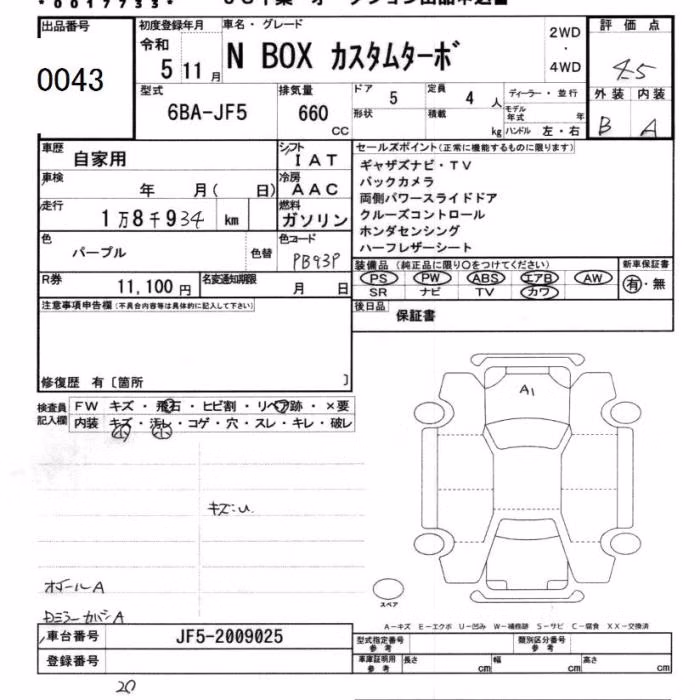 出品番号
0043
初度登録年月
令和
5 11 月
車名・グレード
N BOX カスタムターボ
2WD
・
4WD
評価点
4.5
外装 内装
B A
型式
6BA-JF5
排気量
660
CC
ドア
5
形状
定員
4 人
積載
kg
ディーラー・並行
モデル年式 年
ハンドル 左・右
車歴
自家用
シフト
IAT
車検
年 月( 日)
冷房
AAC
走行
1万8千934 km
燃料
ガソリン
色
パープル
色替
色コード
PB93P
R券
11,100 円
名変通知期限
月 日
セールスポイント(正常に機能するものに限ります)
ギャザズナビ・TV
バックカメラ
両側パワースライドドア
クルーズコントロール
ホンダセンシング
ハーフレザーシート
装備品 (純正品に限り○をつけてください)
PS PW ABS エアB AW
SR ナビ TV カワ
新車保証書
有・無
後日品
保証書
注意事項申告欄(不具合内容等は具体的に記入して下さい)
修復歴 有〔箇所 〕
検査員
記入欄
FW キズ・飛石・ヒビ割・リペア跡・×要
内装 キズ・汚レ・コゲ・穴・スレ・キレ・破レ
小 小
A1
キズ:U
ホイールA
Dミラーカバー A
スペア
A-キズ E-エクボ U-凹み W-補修跡 S-サビ C-腐食 XX-交換済
車台番号
JF5-2009025
登録番号
型式指定番号
参考
類別区分番号
参考
車庫証明用
参考
長さ cm
幅 cm
高さ cm
20